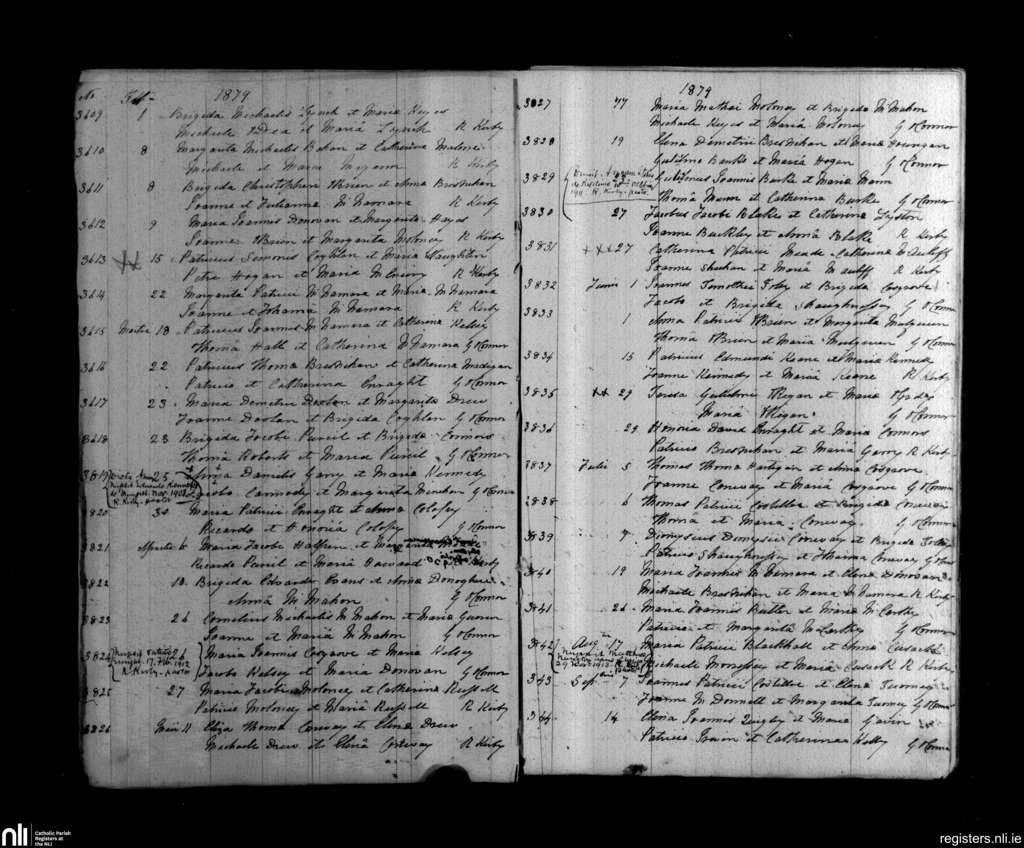 No Feb- 1879
3609 1 Brigida Michaelis Lynch et Maria Keyes
Michaele Shea et Maria Lynch R Kirby
3610 8 Margarita Michaelis Behan et Catherina
Michaele et Maria R Kirby
3611 8 Brigida Christopheri O'Brien et Anna Bresnihan
Joanne et Julianna McNamara R Kirby
3612 9 Maria Joannis Donovan et Margarita Hayes
Joannes O'Brien et Margarita Moloney R Kirby
3613 XX 15 Patricius Simonis Coghlan et Maria Naughton
Petro Hogan et Maria R Kirby
3614 22 Margarita Patricii McNamara et Maria McNamara
Joanne et Johanna McNamara R Kirby
3615 Martii 18 Patricius Joannis McNamara et Catherina Kelsey
Thoma Hall et Catherina McNamara G O'Connor
3616 22 Patricius Thoma Bresnihan et Catherina Madigan
Patricio et Catherina Enraght G O'Connor
3617 23 Maria Demetrii Doolan et Margarita Drew
Joanne Doolan et Brigida Coghlan G O'Connor
3618 23 Brigida Jacobi Purcil et Brigida Connors
Thoma Roberts et Maria Purcil G O'Connor
3819 25 Anna Danielis Garry et Maria Kennedy
Jacobo Carmody et Margarita Meehan G O'Connor
R Kirby - pastor
3820 30 Maria Patricii Enraght et Anna Colopy
Ricardo et Honoria Colopy G O'Connor
3821 Aprilis 6 Maria Jacobi Halpin et
Ricardo Purcil et Maria
3822 10 Brigida Edwardi Evans et Anna Donoghue
Anna McMahon G O'Connor
3823 26 Cornelius Michaelis McMahon et Maria
Joanne et Maria McMahon G O'Connor
3824 26 Maria Joannis Cosgrove et Maria Kelsey
Jacobo Kelsey et Maria Donovan G O'Connor
17. Feb. 1912
R. Kirby - pastor
3825 27 Maria Jacobi Moloney et Catherina Russell
Patricio Moloney et Maria Russell R Kirby
3826 Maii 11 Eliza Thoma Conway et Elena Drew
Michaele Drew et Elena Conway R Kirby
1879
3827 17 Maria Mathei Moloney et Brigida McMahon
Michaele Keyes et Maria Moloney G O'Connor
3828 19 Elena Demetrii Bresnihan et Maria Hourigan
Gulielmo Burke et Maria Hogan G O'Connor
3829 23 Gulielmus Joannis Burke et Maria Mann
Thoma Mann et Catherina Burke G O'Connor
1911 R. Kirby - pastor
3830 27 Jacobus Jacobi Blake et Catherina Lyston
Joanne Buckley et Anna Blake R Kirby
3831 + XX 27 Catherina Patricii Meade et Catherina McAuliff
Joanne Sheehan et Maria McAuliff R Kirby
3832 Junii 1 Joannes Timothei Foley et Brigida Cosgrove
Jacobo et Brigida Shaughnessy G O'Connor
3833 1 Anna Patricii O'Brien et Margarita Mulqueen
Thoma O'Brien et Maria Mulqueen G O'Connor
3834 15 Patricius Edmundi Keane et Maria Kennedy
Joanne Kennedy et Maria Keane R Kirby
3835 XX 29 Teresa Gulielmi O'Regan et Maria
Maria O'Regan G O'Connor
3836 29 Honoria David Enraght et Maria Connors
Patricio Bresnihan et Maria Garry R Kirby
3837 Julii 5 Thomas Thoma Hartigan et Anna Cosgrove
Joanne Conway et Maria Cosgrove G O'Connor
2838 6 Thomas Patricii Costelloe et Brigida Conway
Thoma et Maria Conway G O'Connor
3839 7 Dionysius Dionysii Conway et Brigida
Patricio Shaughnessy et Johanna Conway G O'Connor
3840 19 Maria Joannis McNamara et Elena Donovan
Michaele Bresnihan et Maria McNamara R Kirby
3841 26 Maria Joannis Butler et Maria McCarthy
Patricio et Margarita McCarthy G O'Connor
3842 Aug 17 Maria Patricii Blackhall et Anna Cusack
Michaele Morrissey et Maria Cusack R Kirby
3843 Sep 7 Joannes Patricii Costelloe et Elena Tuomey
Joanne McDonnell et Margarita Tuomey G O'Connor
3844 14 Elena Joannis Quigley et Maria Gavin
Patricio Gavin et Catherina Kelly G O'Connor
nli
Catholic Parish
Registers at
the NLI
registers.nli.ie